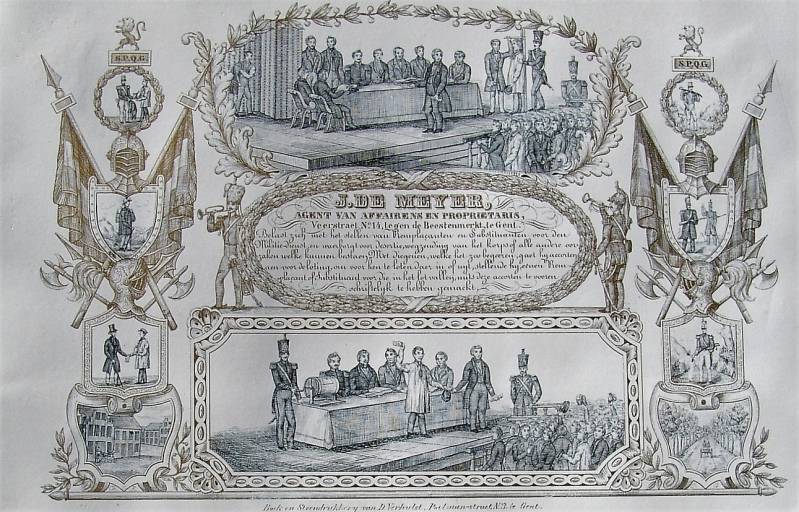 S.P.Q.G.
S.P.Q.G.
J. DE MEYER,
AGENT VAN AFFAIRENS EN PROPRIETARIS,
Veerstraet, No. 14, tegen de Beestenmerkt, te Gent.
Belast zich met het stellen van Remplacanten en Substituanten voor den
Militie-Dienst, om
van het korps of alle andere oor-
zaken welke kunnen bestaen; Met diegenen, welke het zoo begeeren, gaet hy accorten
aen voor de loting, om voor hen te loten, daer in of uyt, stellende by eenen Rem-
plaçant of Substituant voor
willen zyn hun dese accorten te vooren
schriftelyk te hebben gemaekt.
Boek en Steendrukkery van D. Verhulst, Potman-straet, N. 3, te Gent.